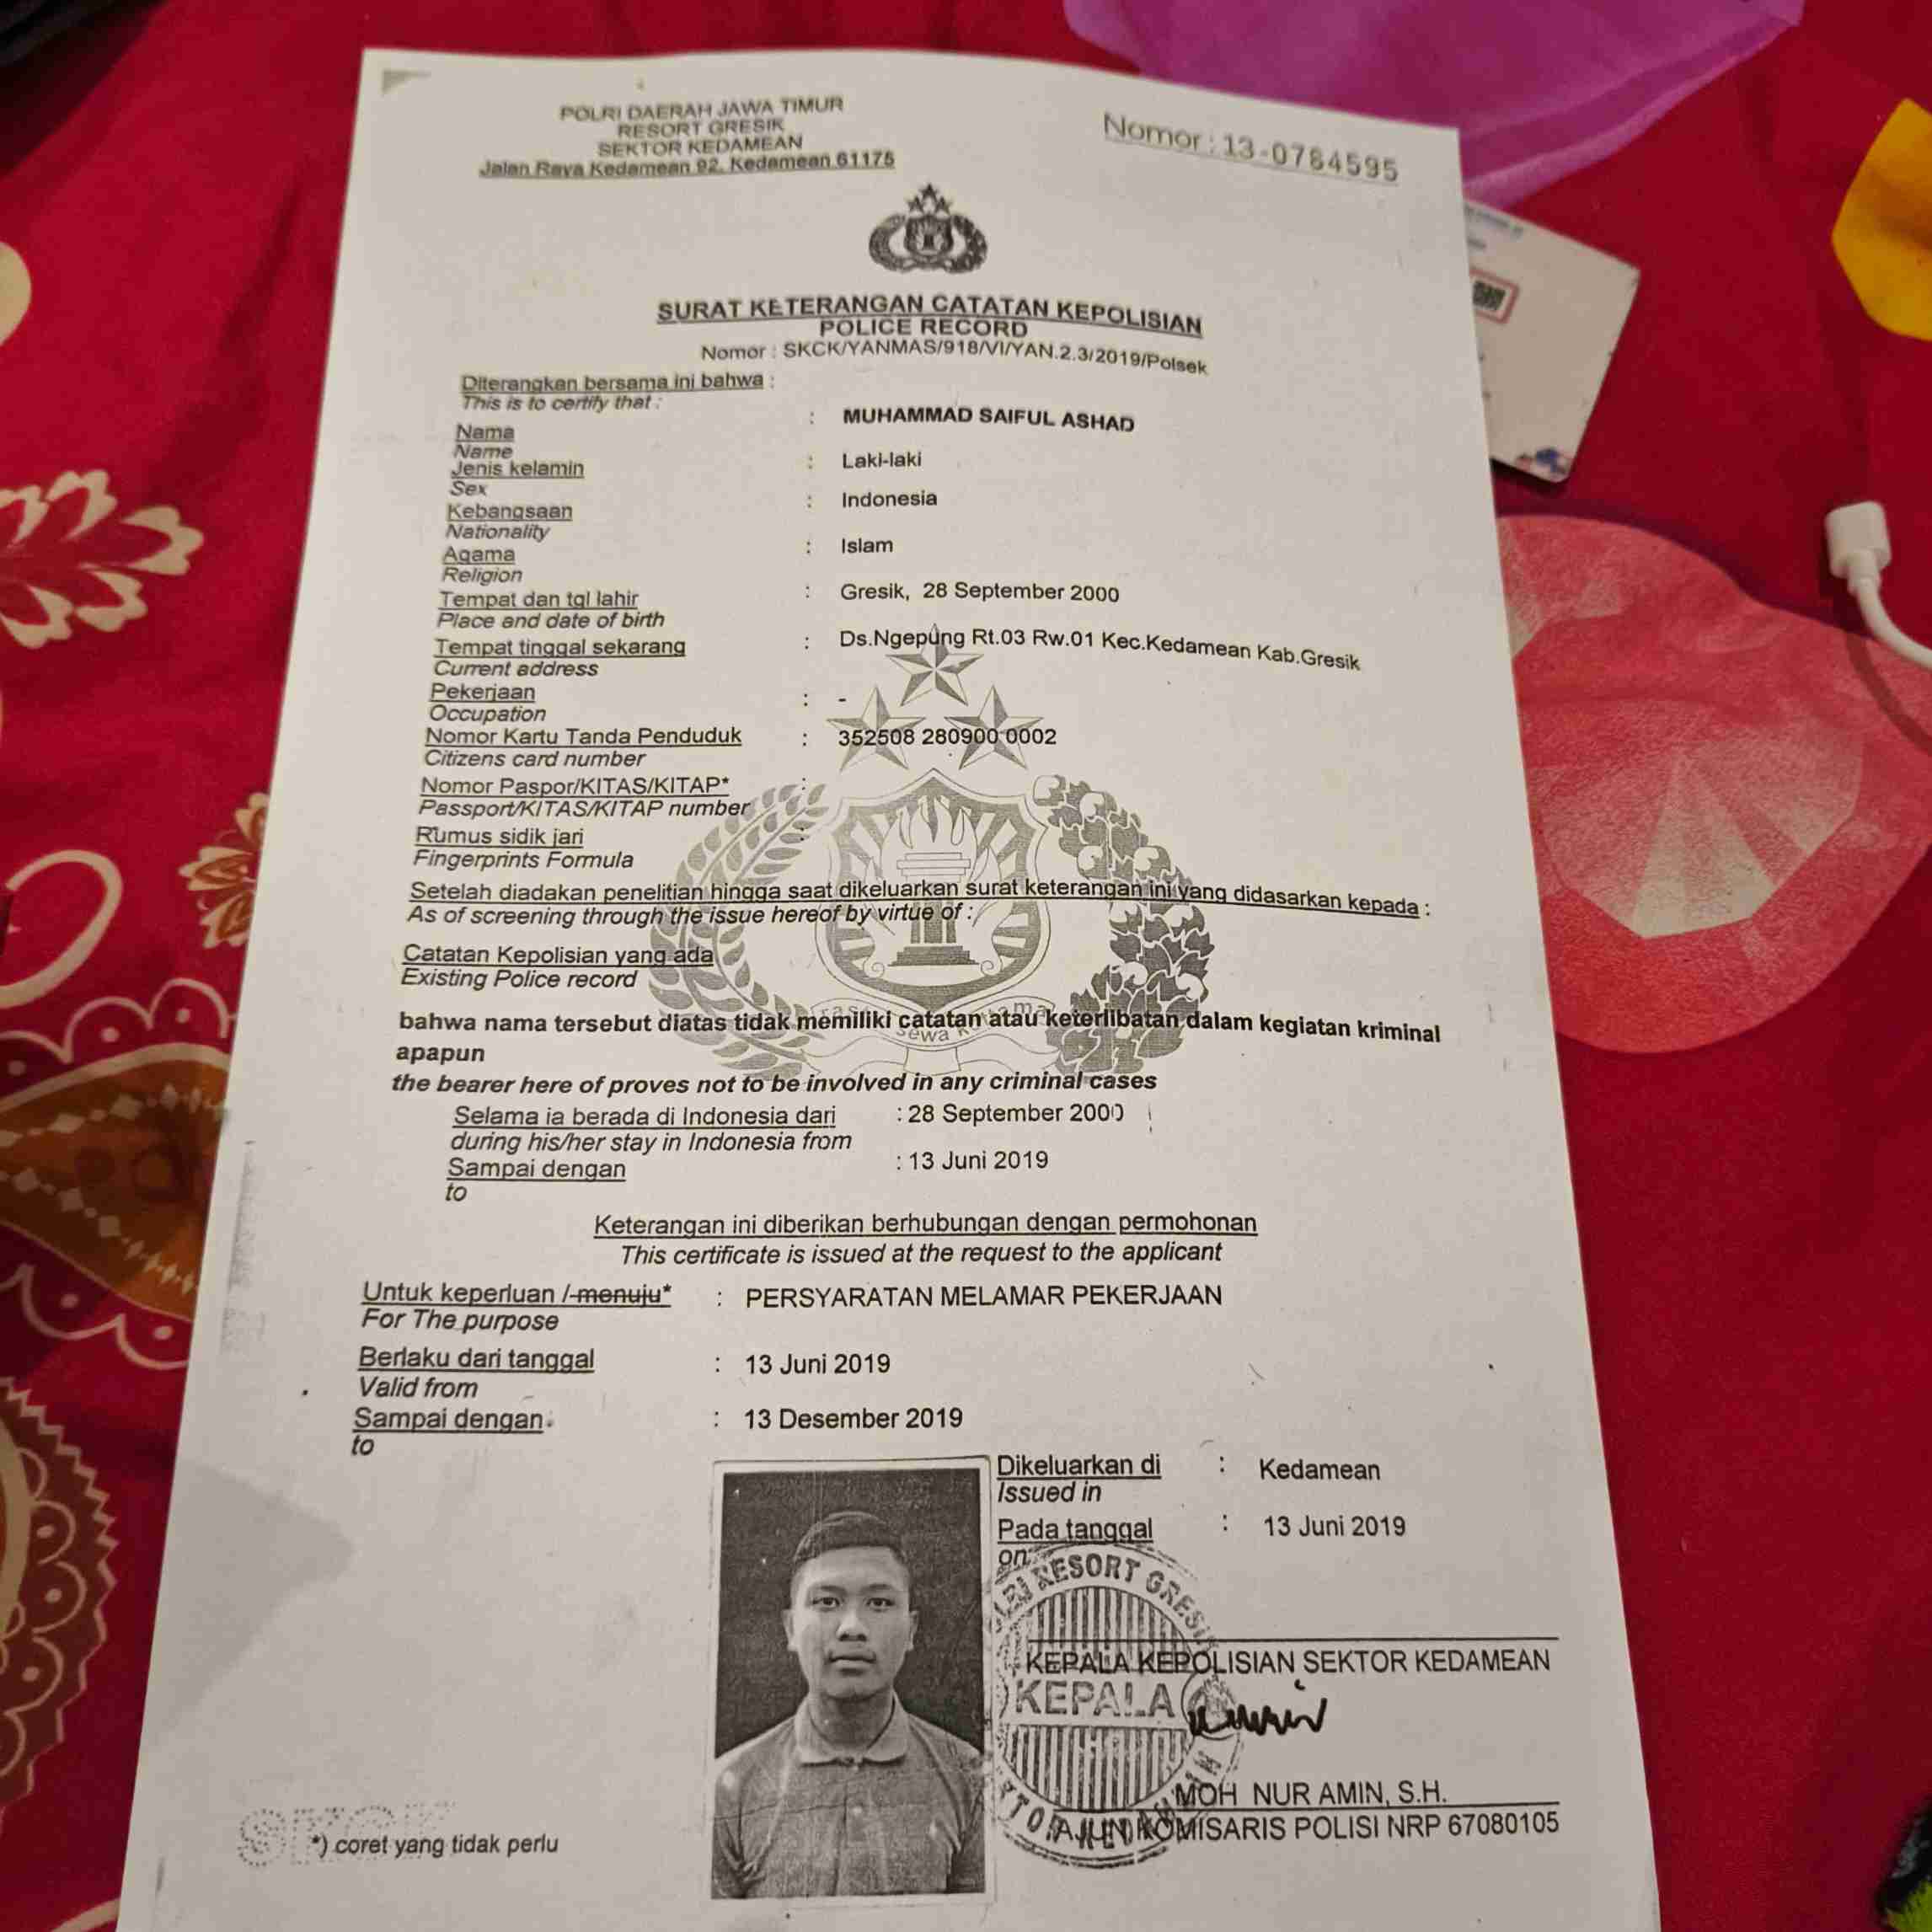 POLRI DAERAH JAWA TIMUR
RESORT GRESIK
SEKTOR KEDAMEAN
Jalan Raya Kedamean 92. Kedamean 61175
Nomor : 13-0784595
SURAT KETERANGAN CATATAN KEPOLISIAN
POLICE RECORD
Nomor : SKCK/YANMAS/918/VI/YAN.2.3/2019/Polsek
Diterangkan bersama ini bahwa :
This is to certify that :
Nama : MUHAMMAD SAIFUL ASHAD
Name
Jenis kelamin : Laki-laki
Sex
Kebangsaan : Indonesia
Nationality
Agama : Islam
Religion
Tempat dan tgl lahir : Gresik, 28 September 2000
Place and date of birth
Tempat tinggal sekarang : Ds.Ngepung Rt.03 Rw.01 Kec.Kedamean Kab.Gresik
Current address
Pekerjaan : -
Occupation
Nomor Kartu Tanda Penduduk : 352508 280900 0002
Citizens card number
Nomor Paspor/KITAS/KITAP* :
Passport/KITAS/KITAP number
Rumus sidik jari :
Fingerprints Formula
Setelah diadakan penelitian hingga saat dikeluarkan surat keterangan ini yang didasarkan kepada :
As of screening through the issue hereof by virtue of :
Catatan Kepolisian yang ada
Existing Police record
bahwa nama tersebut diatas tidak memiliki catatan atau keterlibatan dalam kegiatan kriminal
apapun
the bearer here of proves not to be involved in any criminal cases
Selama ia berada di Indonesia dari : 28 September 2000
during his/her stay in Indonesia from
Sampai dengan : 13 Juni 2019
to
Keterangan ini diberikan berhubungan dengan permohonan
This certificate is issued at the request to the applicant
Untuk keperluan /-menuju* : PERSYARATAN MELAMAR PEKERJAAN
For The purpose
Berlaku dari tanggal : 13 Juni 2019
Valid from
Sampai dengan : 13 Desember 2019
to
Dikeluarkan di : Kedamean
Issued in
Pada tanggal : 13 Juni 2019
on
RESORT GRESIK
KEPALA KEPOLISIAN SEKTOR KEDAMEAN
KEPALA
MOH NUR AMIN, S.H.
AJUN KOMISARIS POLISI NRP 67080105
SKCK
*) coret yang tidak perlu